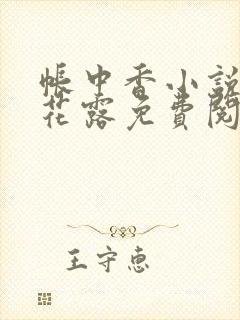 帐中香小說
花露免費閱
王守惠